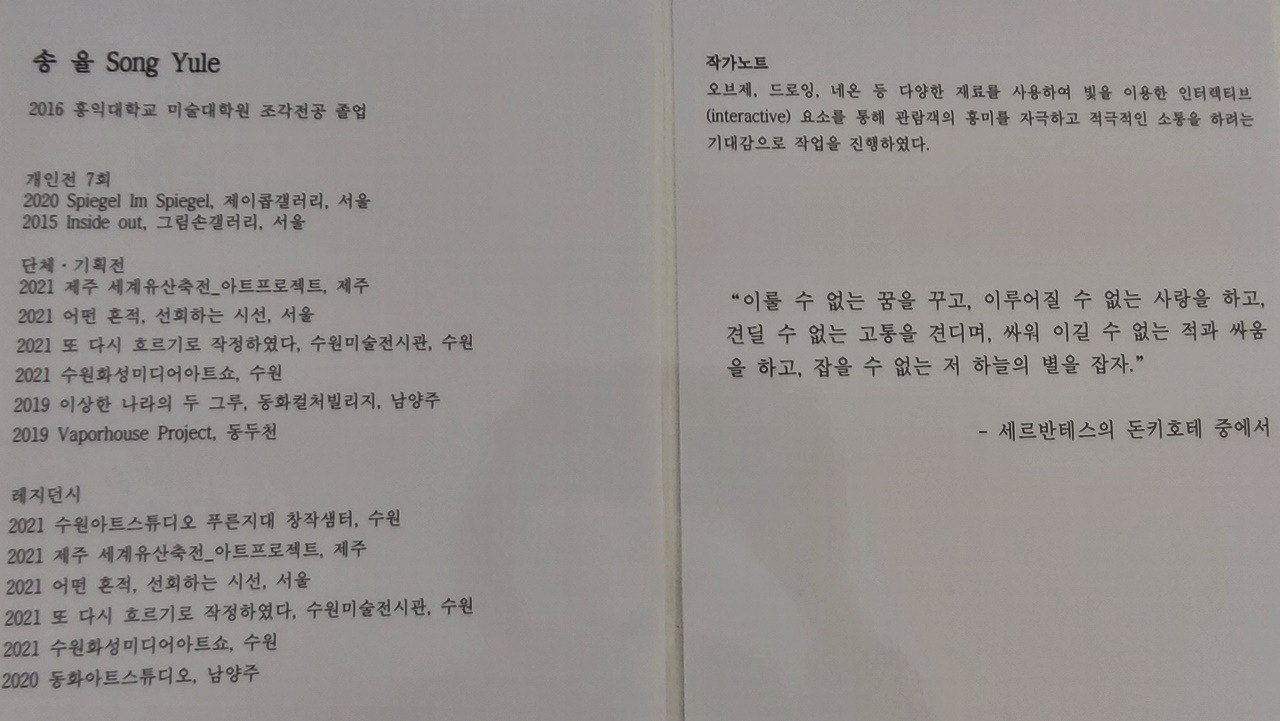 송 율 Song Yule
2016 홍익대학교 미술대학원 조각전공 졸업
개인전 7회
2020 Spiegel Im Spiegel, 제이콥갤러리, 서울
2015 Inside out, 그림손갤러리, 서울
단체 · 기획전
2021 제주 세계유산축전_아트프로젝트, 제주
2021 어떤 흔적, 선회하는 시선, 서울
2021 또 다시 흐르기로 작정하였다, 수원미술전시관, 수원
2021 수원화성미디어아트쇼, 수원
2019 이상한 나라의 두 그루, 동화컬처빌리지, 남양주
2019 Vaporhouse Project, 동두천
레지던시
2021 수원아트스튜디오 푸른지대 창작샘터, 수원
2021 제주 세계유산축전_아트프로젝트, 제주
2021 어떤 흔적, 선회하는 시선, 서울
2021 또 다시 흐르기로 작정하였다, 수원미술전시관, 수원
2021 수원화성미디어아트쇼, 수원
2020 동화아트스튜디오, 남양주
작가노트
오브제, 드로잉, 네온 등 다양한 재료를 사용하여 빛을 이용한 인터렉티브
(interactive) 요소를 통해 관람객의 흥미를 자극하고 적극적인 소통을 하려는
기대감으로 작업을 진행하였다.
“이룰 수 없는 꿈을 꾸고, 이루어질 수 없는 사랑을 하고,
견딜 수 없는 고통을 견디며, 싸워 이길 수 없는 적과 싸움
을 하고, 잡을 수 없는 저 하늘의 별을 잡자.”
- 세르반테스의 돈키호테 중에서